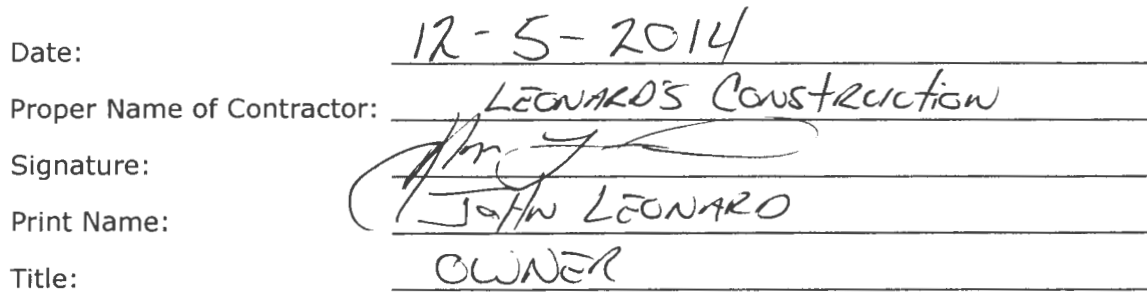 Date: 12-5-2014
Proper Name of Contractor: LEONARD'S CONStRUCtiON
Signature:
Print Name: JOHN LEONARD
Title: OWNER